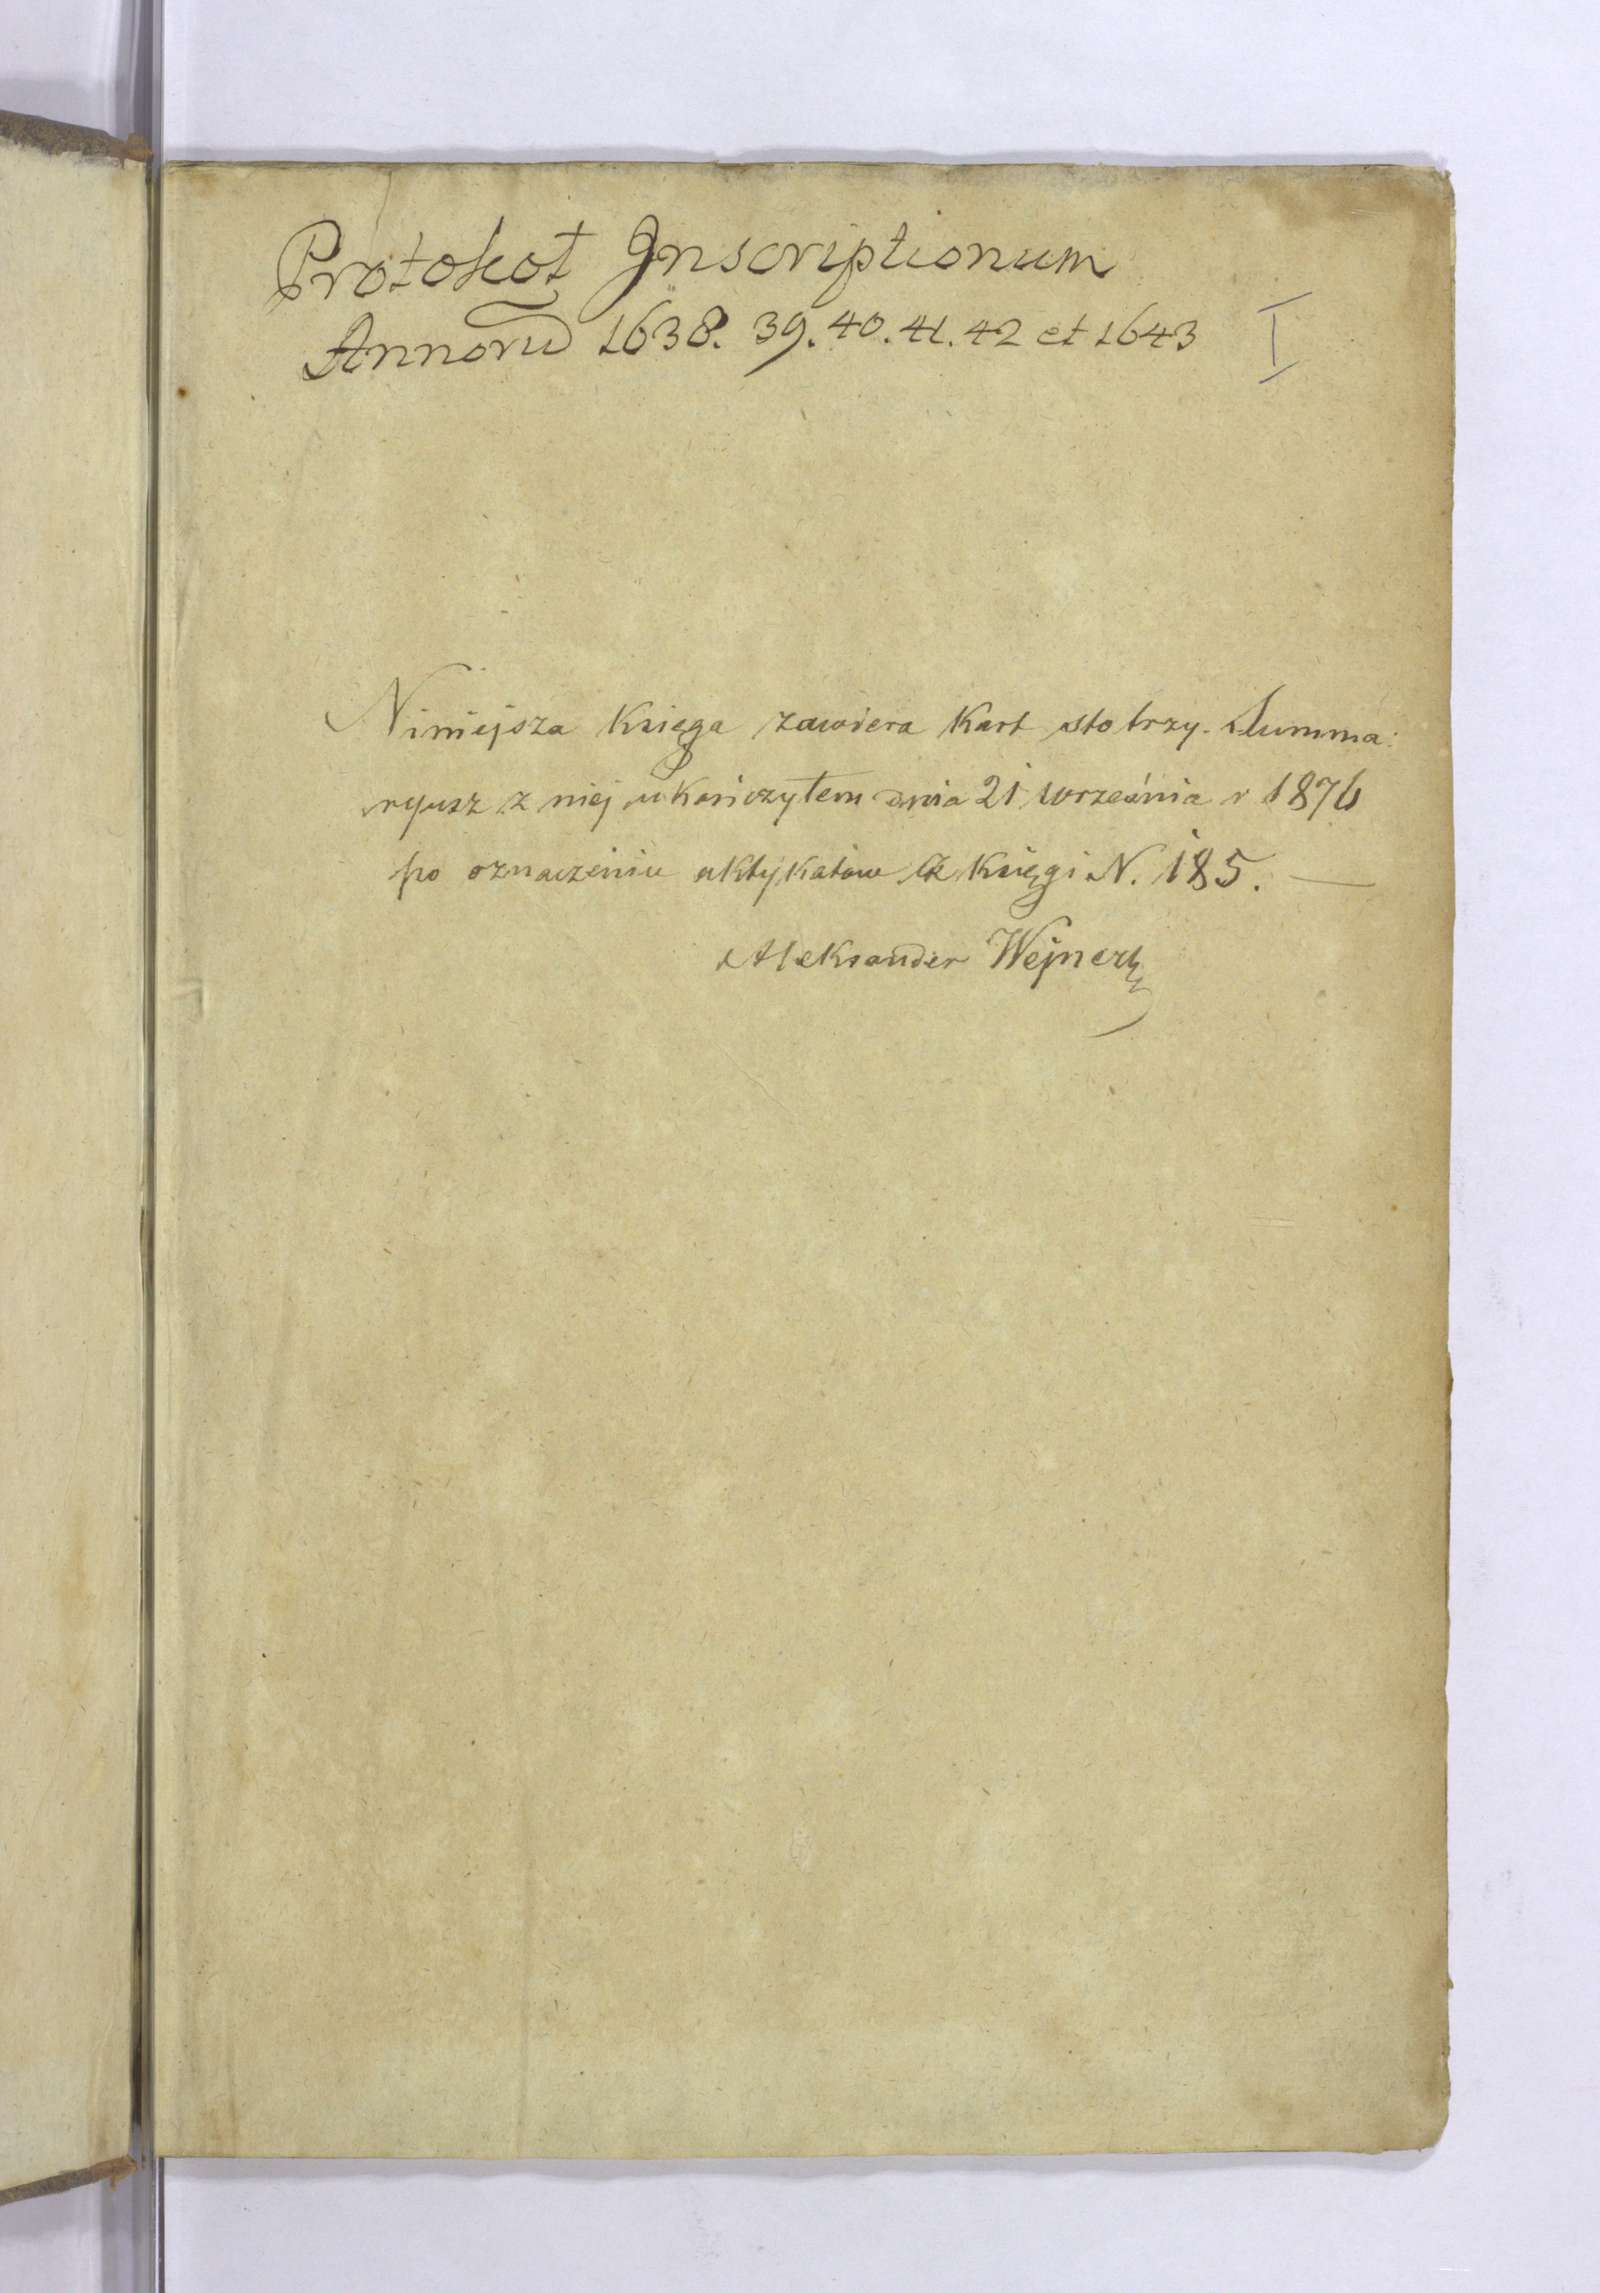 Protokoł Inscriptionum
Annorũ 1638. 39. 40. 41. 42 et 1643 I
Niniejsza Księga zawiera Kart sto trzy. Summa:
ryusz z niej ukończyłem dnia 21 września r 1876
po oznaczeniu aktykatów księgi N. 185. —
Aleksander Wejnert